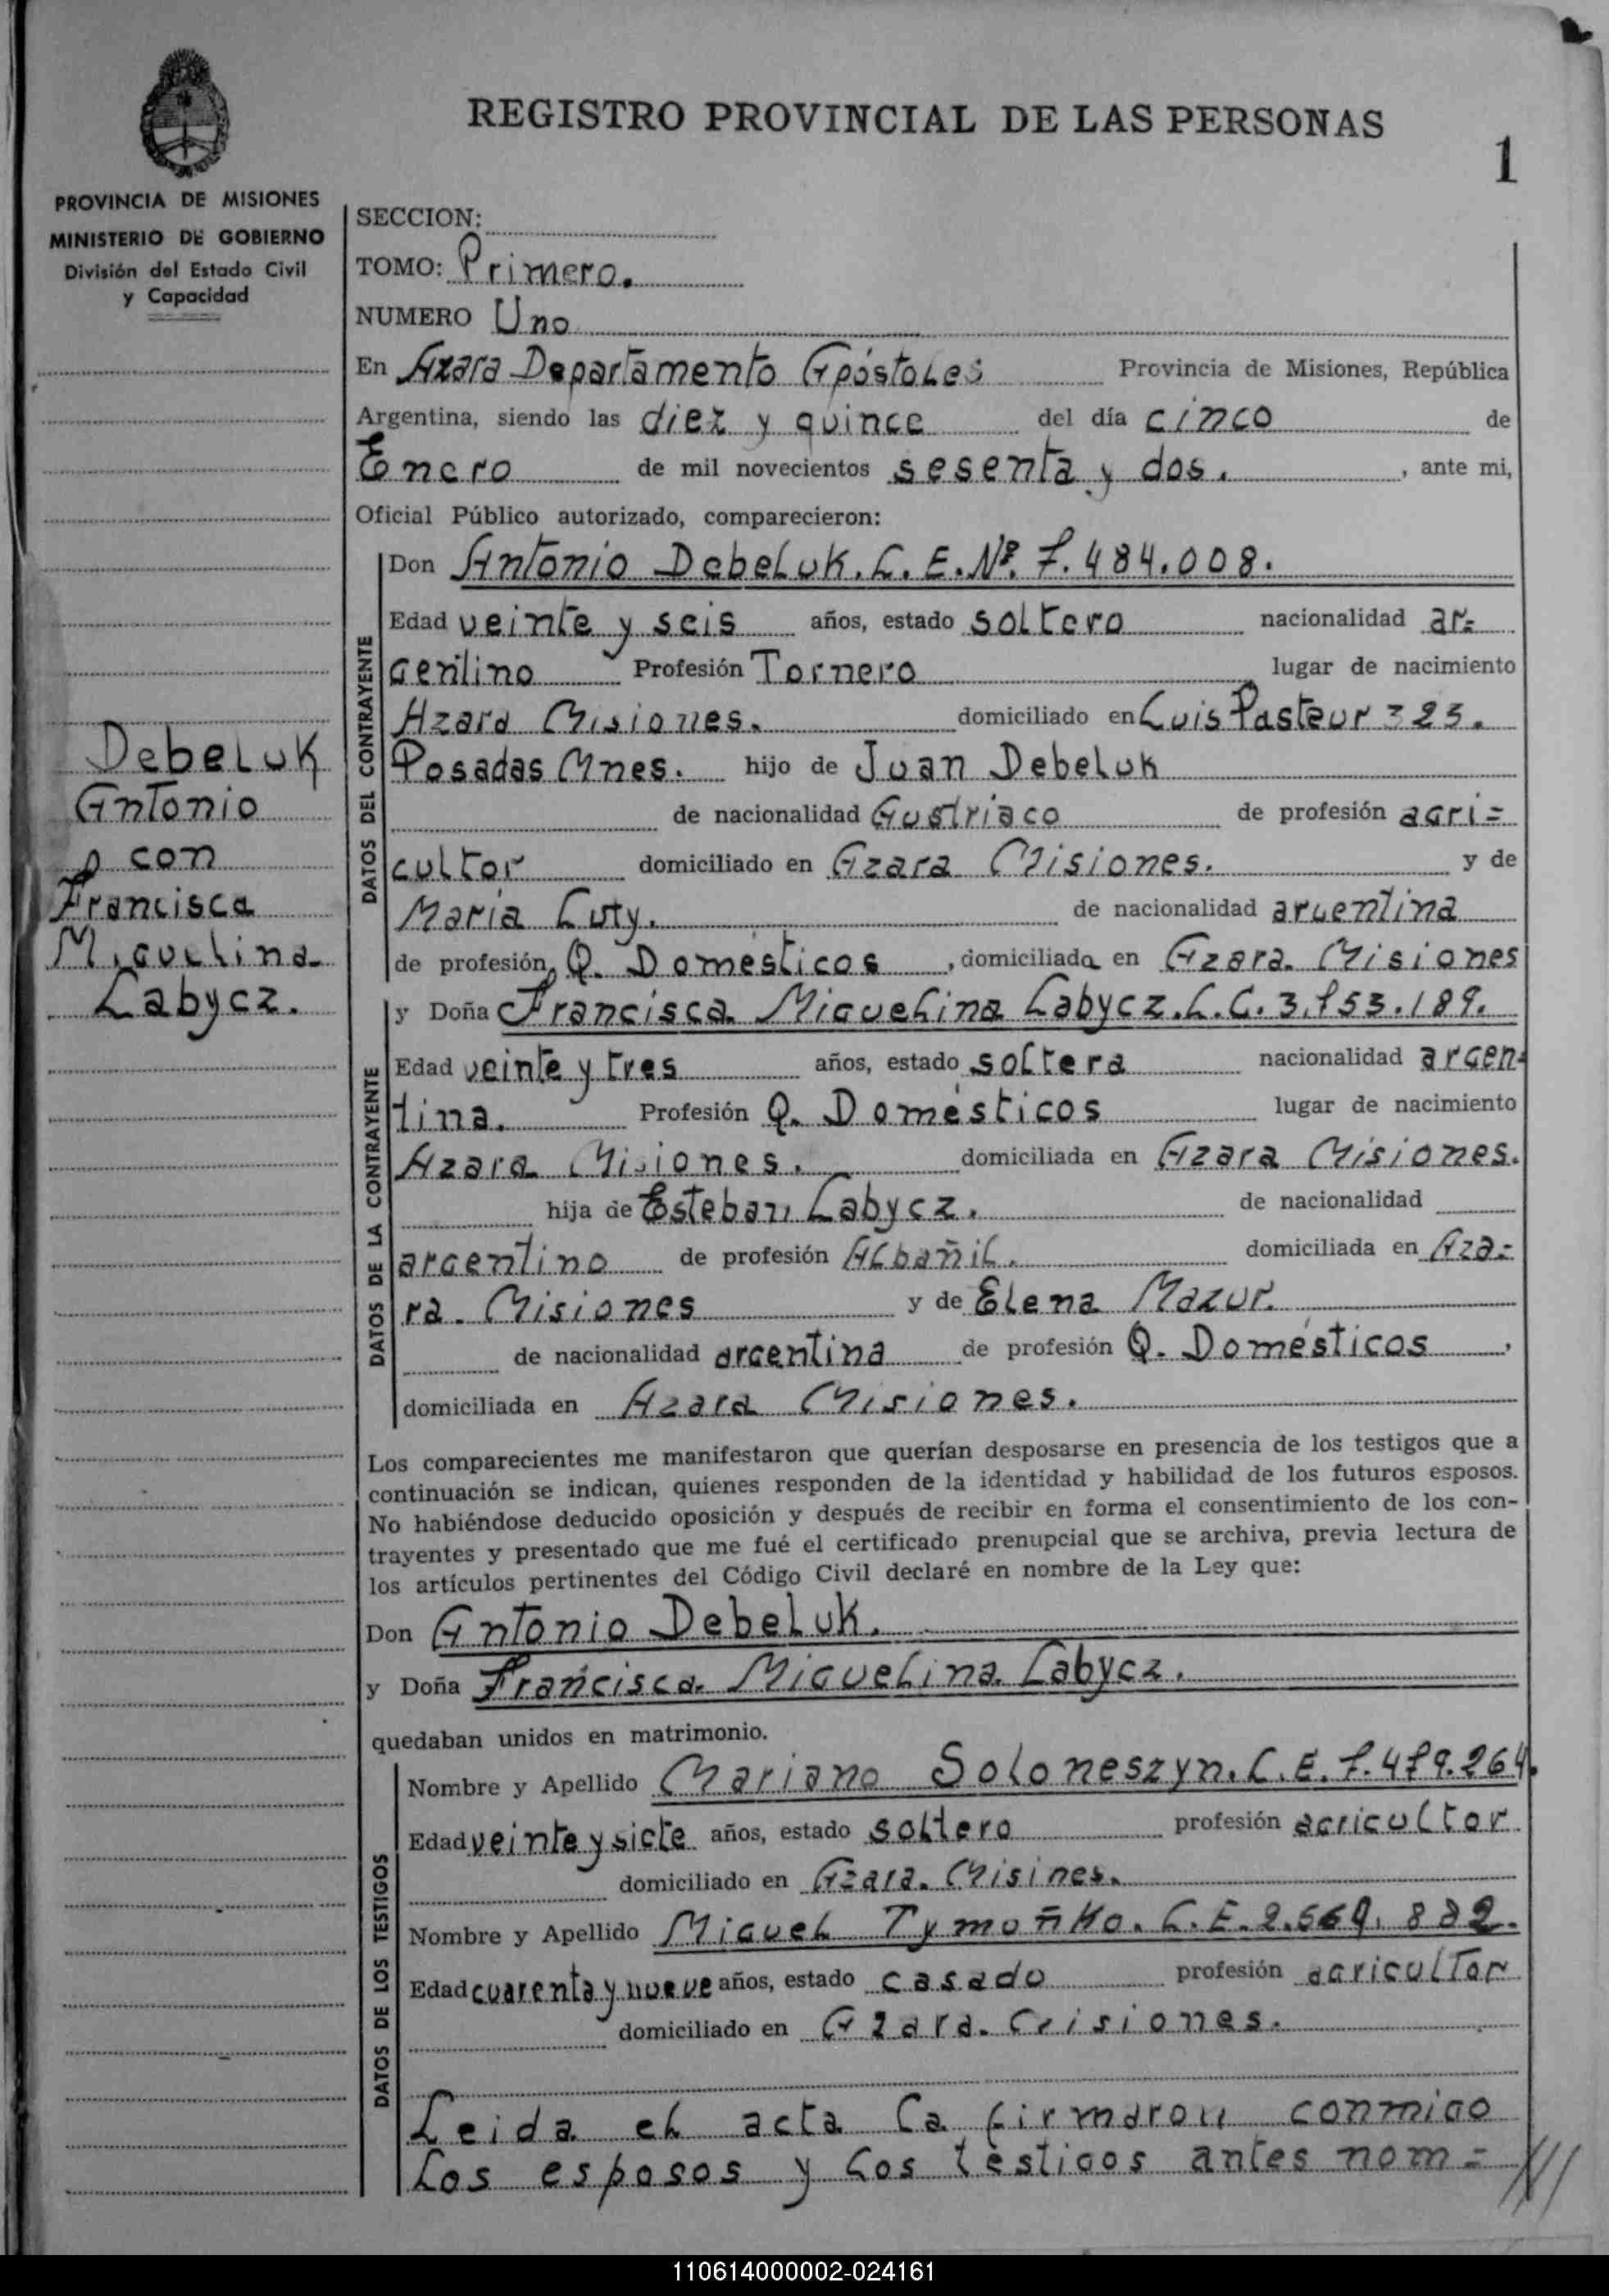 REGISTRO PROVINCIAL DE LAS PERSONAS
1
PROVINCIA DE MISIONES
MINISTERIO DE GOBIERNO
División del Estado Civil
y Capacidad
Debeluk
Antonio
con
Francisca
Miguelina
Labycz.
SECCION:
TOMO: Primero.
NUMERO Uno
En Azara Departamento Apóstoles Provincia de Misiones, República
Argentina, siendo las diez y quince del día cinco de
Enero de mil novecientos sesenta y dos. , ante mi,
Oficial Público autorizado, comparecieron:
DATOS DEL CONTRAYENTE
Don Antonio Debeluk. L. E. Nº. 7.484.008.
Edad veinte y seis años, estado soltero nacionalidad ar=
gentino Profesión Tornero lugar de nacimiento
Azara Misiones. domiciliado en Luis Pasteur 323.
Posadas Mnes. hijo de Juan Debeluk
de nacionalidad Austriaco de profesión agri=
cultor domiciliado en Azara Misiones. y de
María Luty. de nacionalidad argentina
de profesión Q. Domésticos , domiciliada en Azara. Misiones
DATOS DE LA CONTRAYENTE
y Doña Francisca Miguelina Labycz. L. C. 3.753.189.
Edad veinte y tres años, estado soltera nacionalidad argen=
tina. Profesión Q. Domésticos lugar de nacimiento
Azara Misiones. domiciliada en Azara Misiones.
hija de Esteban Labycz. de nacionalidad
argentino de profesión Albañil. domiciliada en Aza=
ra. Misiones y de Elena Mazur.
de nacionalidad argentina de profesión Q. Domésticos ,
domiciliada en Azara Misiones.
Los comparecientes me manifestaron que querían desposarse en presencia de los testigos que a
continuación se indican, quienes responden de la identidad y habilidad de los futuros esposos.
No habiéndose deducido oposición y después de recibir en forma el consentimiento de los con-
trayentes y presentado que me fué el certificado prenupcial que se archiva, previa lectura de
los artículos pertinentes del Código Civil declaré en nombre de la Ley que:
Don Antonio Debeluk.
y Doña Francisca Miguelina Labycz.
quedaban unidos en matrimonio.
DATOS DE LOS TESTIGOS
Nombre y Apellido Mariano Soloneszyn. L. E. 7.479.264.
Edad veinte y siete años, estado soltero profesión agricultor
domiciliado en Azara. Misines.
Nombre y Apellido Miguel Tymoñko. L. E. 2.569.882.
Edad cuarenta y nueve años, estado casado profesión agricultor
domiciliado en Azara. Misiones.
Leida el acta la firmaron conmigo
los esposos y los testigos antes nom= ///
110614000002-024161